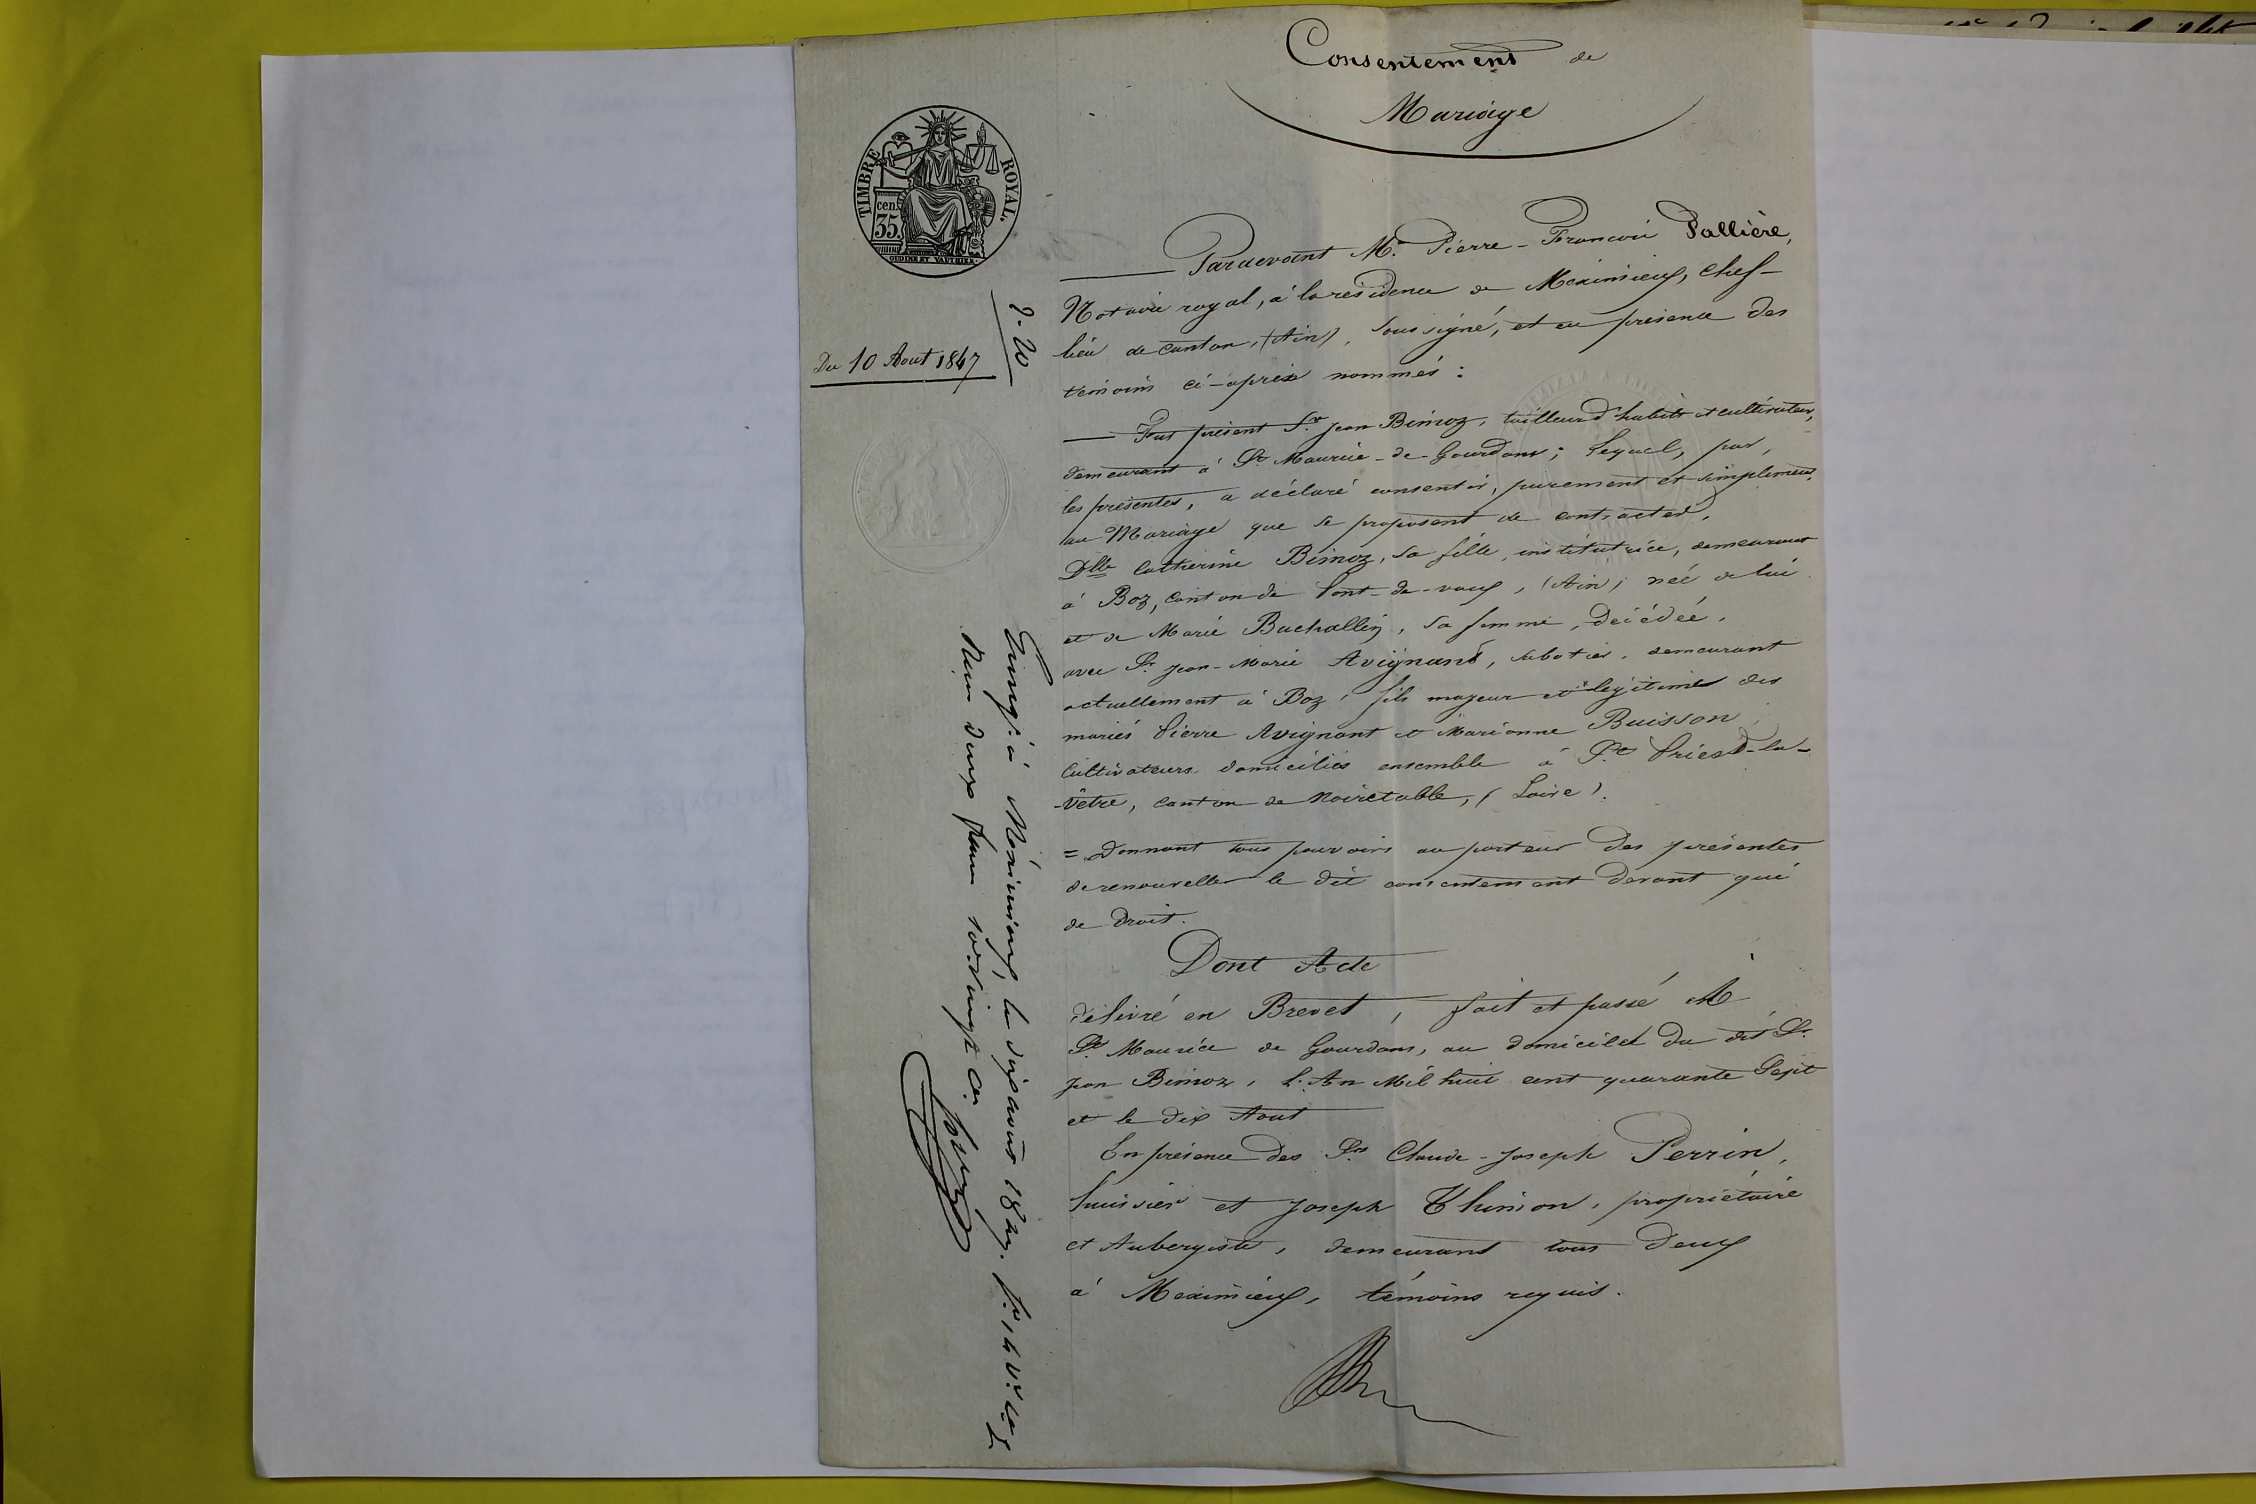 Consentement de
Mariage
TIMBRE ROYAL
cen. 35.
2-20
Du 10 Aout 1847
Pardevant Me. Pierre-Francois Pallière,
Notaire royal, à la résidence de Meximieux, chef-
lieu de canton, (Ain), soussigné, et en présence des
témoins ci-après nommés :
Fut présent Sr. Jean Bimoz, tailleur d'habits et cultivateur,
demeurant à St. Maurice-de-Gourdans ; lequel, par,
les présentes, a déclaré consentir, purement et simplement,
au Mariage que se proposent de contracter,
Dlle Catherine Bimoz, sa fille, institutrice, demeurant
à Boz, canton de Pont-de-vaux, (Ain) ; née de lui
et de Marie Bachallin, sa femme, décédée,
avec Sr. Jean-Marie Avignant, sabotier, demeurant
actuellement à Boz, fils majeur et légitime des
mariés Pierre Avignant et Marianne Buisson,
Cultivateurs domiciliés ensemble à St. Priest-la-
-Vêtre, canton de Noirétable, (Loire).
= Donnant tous pouvoirs au porteur des présentes
de renouveller le dit consentement devant qui
de droit.
Dont Acte
délivré en Brevet, fait et passé à
St. Maurice de Gourdans, au domicile du dit Sr.
Jean Bimoz, l'An Mil huit cent quarante Sept
et le dix Aout
En présence des Srs Claude-Joseph Perrin,
huissier et Joseph Thimon, propriétaire
et Aubergiste, demeurant tous deux
à Meximieux, témoins requis.
Enregé. à Méximieux, le dix aout 1847. fo. 14 Vo. Ce.
Reçu deux francs vingt ces